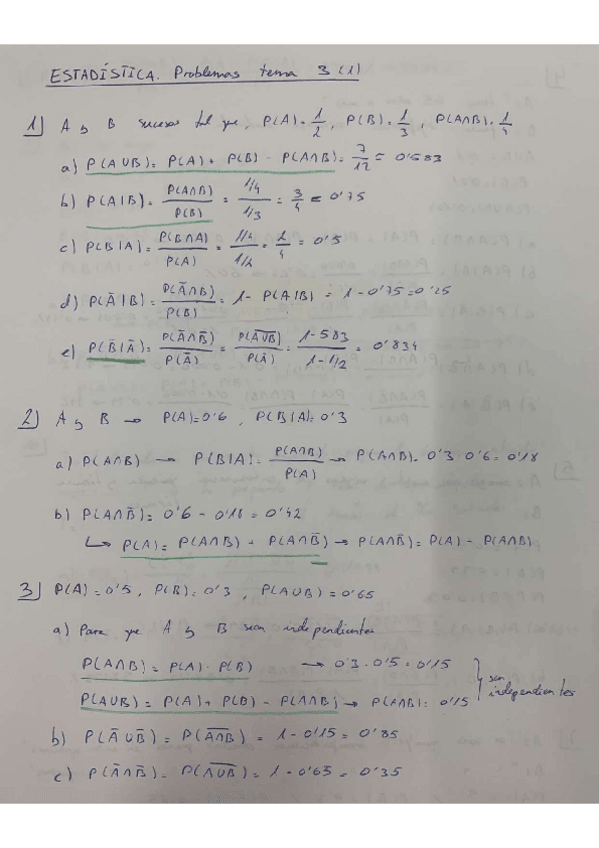 ESTADÍSTICA. Problemas tema 3 (1)
1) A y B sucesos tal que, P(A)=1/2, P(B)=1/3, P(A∩B)=1/4
a) P(A∪B)= P(A)+ P(B) - P(A∩B)= 7/12 = 0'583
b) P(A|B)= P(A∩B)/P(B) = 1/4 / 1/3 = 3/4 = 0'75
c) P(B|A)= P(B∩A)/P(A) = 1/4 / 1/2 = 2/4 = 0'5
d) P(Ā|B)= P(Ā∩B)/P(B) = 1- P(A|B) = 1-0'75 =0'25
e) P(B̄|Ā)= P(Ā∩B̄)/P(Ā) = P(A̅∪̅B̅)/P(Ā) = 1-583 / 1-1/2 = 0'834
2) A y B → P(A)=0'6, P(B|A)=0'3
a) P(A∩B) → P(B|A)= P(A∩B)/P(A) → P(A∩B)= 0'3·0'6=0'18
b) P(A∩B̄)= 0'6 - 0'18 = 0'42
↳ P(A)= P(A∩B) + P(A∩B̄) → P(A∩B̄)= P(A) - P(A∩B)
3) P(A)=0'5, P(B)=0'3, P(A∪B)=0'65
a) Para que A y B sean independientes
P(A∩B)= P(A)·P(B) → 0'3·0'5=0'15
P(A∪B)= P(A)+ P(B) - P(A∩B) → P(A∩B)=0'15 } son independientes
b) P(Ā∪B̄)= P(A̅∩̅B̅) = 1-0'15= 0'85
c) P(Ā∩B̄)= P(A̅∪̅B̅)= 1-0'65= 0'35